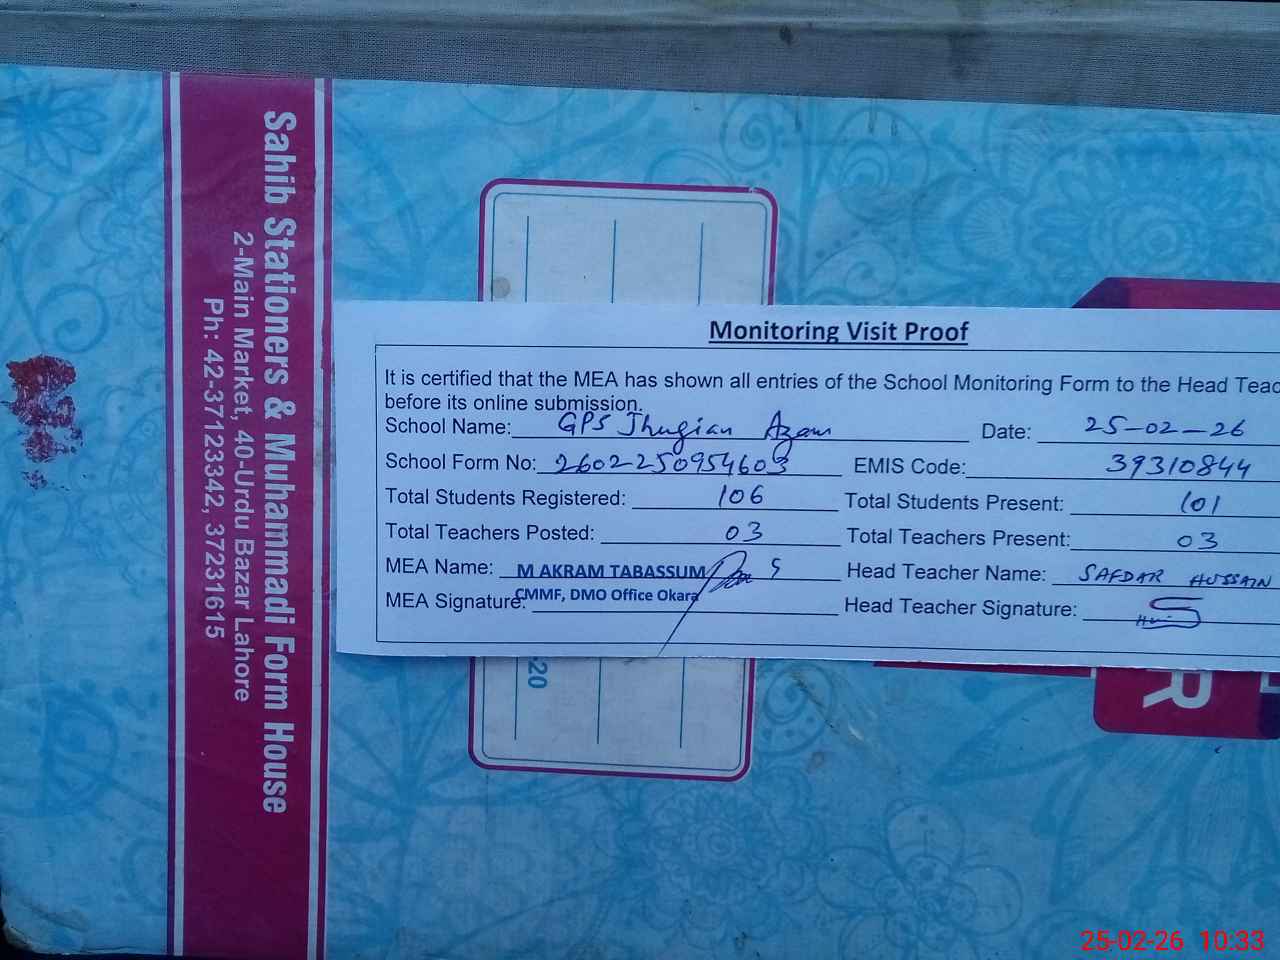 Sahib Stationers & Muhammadi Form House
2-Main Market, 40-Urdu Bazar Lahore
Ph: 42-37123342, 37231615
Monitoring Visit Proof
It is certified that the MEA has shown all entries of the School Monitoring Form to the Head Teac
before its online submission.
School Name: GPS Jhugian Azam Date: 25-02-26
School Form No: 2602250954603 EMIS Code: 39310844
Total Students Registered: 106 Total Students Present: 101
Total Teachers Posted: 03 Total Teachers Present: 03
MEA Name: M AKRAM TABASSUM Head Teacher Name: SAFDAR HUSSAIN
CMMF, DMO Office Okara
MEA Signature: Head Teacher Signature:
-20
R
25-02-26 10:33